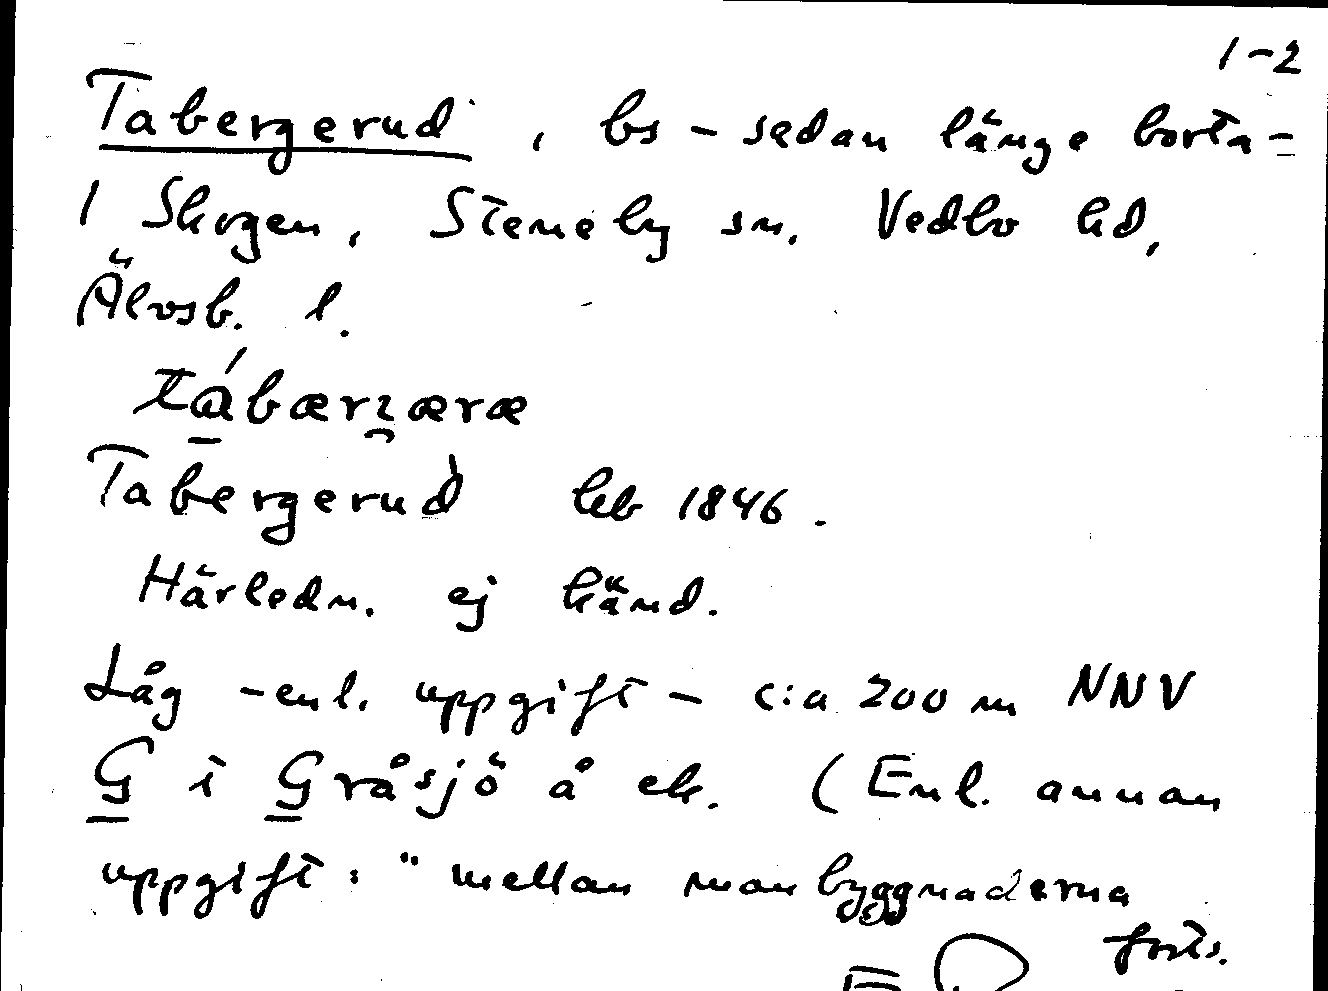 1-2
Tabergerud, bs - sedan länge borta -
I Skogen, Steneby sn. Vedbo hd,
Älvsb. l.
tábærʒæræ
Tabergerud hb 1846.
Härledn. ej känd.
Låg - enl. uppgift - c:a 200 m NNV
G i Gråsjö å ek. (Enl. annan
uppgift: "mellan manbyggnaderna
forts.